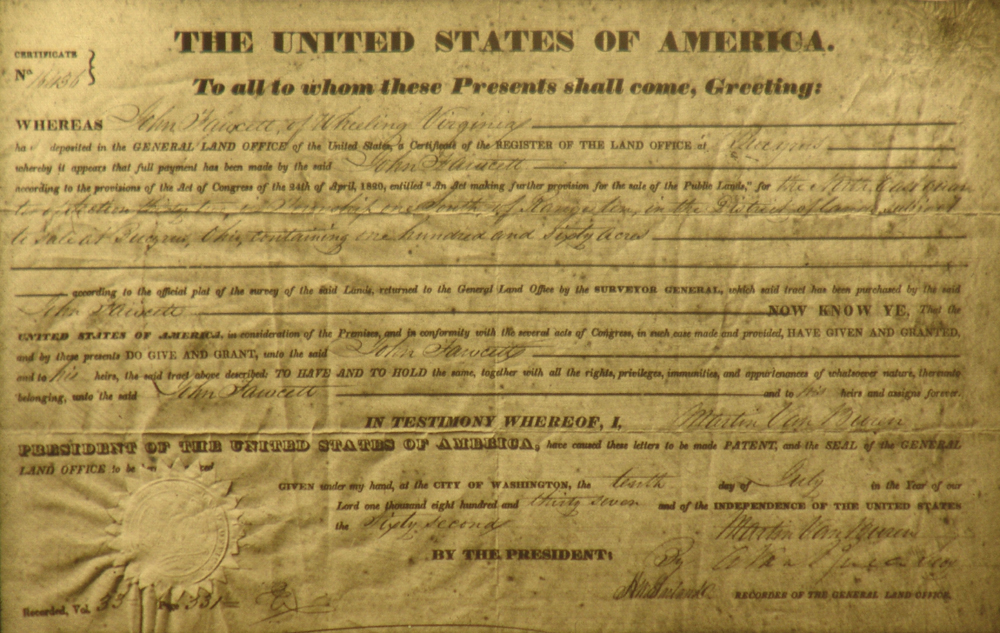 THE UNITED STATES OF AMERICA.
CERTIFICATE
No.
To all to whom these Presents shall come, Greeting:
WHEREAS John Fawcett, of Wheeling Virginia
ha deposited in the GENERAL LAND OFFICE of the United States, a Certificate of the REGISTER OF THE LAND OFFICE at Bucyrus
whereby it appears that full payment has been made by the said John Fawcett
according to the provisions of the Act of Congress of the 24th of April, 1820, entitled "An Act making further provision for the sale of the Public Lands," for the East
of Section in Township one South, of Range ten, in the District of Lands subject
to sale at Bucyrus, Ohio, containing one hundred and sixty acres
according to the official plat of the survey of the said Lands, returned to the General Land Office by the SURVEYOR GENERAL, which said tract has been purchased by the said
John Fawcett NOW KNOW YE, That the
UNITED STATES OF AMERICA, in consideration of the Premises, and in conformity with the several acts of Congress, in such case made and provided, HAVE GIVEN AND GRANTED,
and by these presents DO GIVE AND GRANT, unto the said John Fawcett
and to his heirs, the said tract above described: TO HAVE AND TO HOLD the same, together with all the rights, privileges, immunities, and appurtenances of whatsoever nature, thereunto
belonging, unto the said John Fawcett and to his heirs and assigns forever.
IN TESTIMONY WHEREOF, I, Martin Van Buren
PRESIDENT OF THE UNITED STATES OF AMERICA, have caused these letters to be made PATENT, and the SEAL of the GENERAL
LAND OFFICE to be
GIVEN under my hand, at the CITY OF WASHINGTON, the tenth day of July in the Year of our
Lord one thousand eight hundred and thirty seven and of the INDEPENDENCE OF THE UNITED STATES
the Sixty second Martin Van Buren
BY THE PRESIDENT: By
RECORDER OF THE GENERAL LAND OFFICE.
Recorded, Vol. 33 Page 331